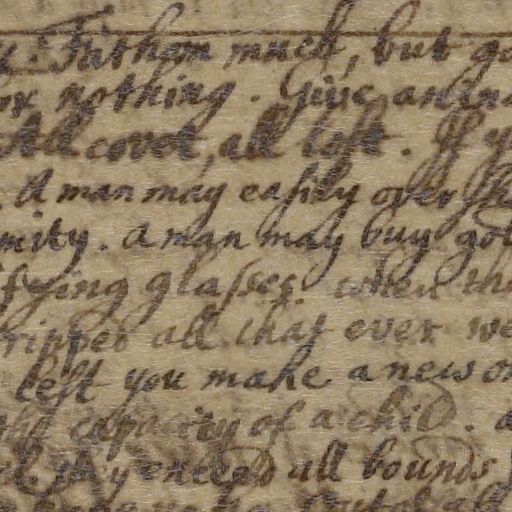 Fathom much, but go
or nothing. Give anin
All covet, all lost. If y
. A man may easily over sh
mity. A man may buy gol
fying glasses. when th
ripped all that ever we
left you make a new on
capacity of a child. a
exceed all bounds